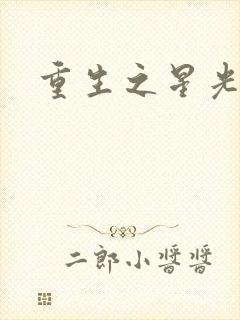 重生之星光
二郎小醬醬